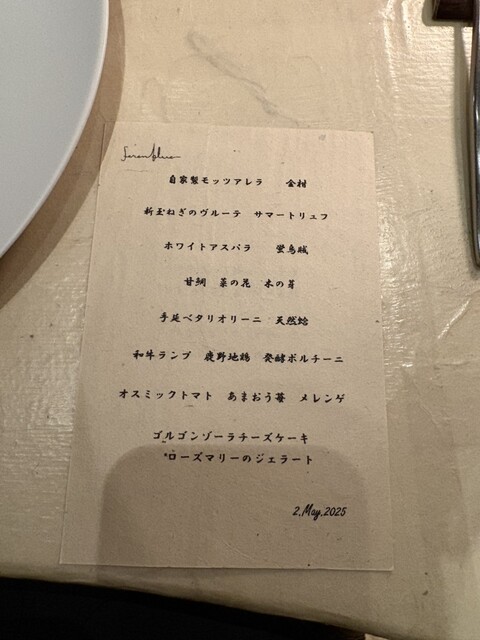 自家製モッツアレラ　金柑
新玉ねぎのヴルーテ　サマートリュフ
ホワイトアスパラ　蛍烏賊
甘鯛　菜の花　木の芽
手延べタリオリーニ　天然蛤
和牛ランプ　鹿野地鶏　発酵ポルチーニ
オスミックトマト　あまおう苺　メレンゲ
ゴルゴンゾーラチーズケーキ
*ローズマリーのジェラート
2.May.2025